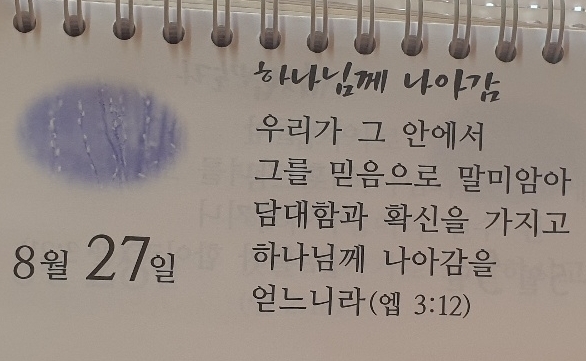 하나님께 나아감
우리가 그 안에서
그를 믿음으로 말미암아
담대함과 확신을 가지고
하나님께 나아감을
얻느니라(엡 3:12)
8월 27일